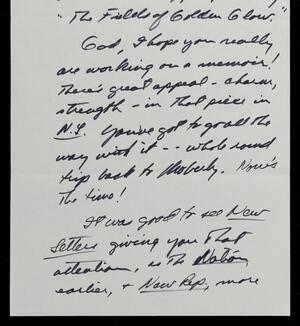 "The Fields of Golden Glow."
God, I hope you really
are working on a memoir!
There's great appeal – charm,
strength – in that piece in
N.L. You've got to go all the
way with it -- whole round
trip back to Moberly. Now's
the time!
It was good to see New
Letters giving you that
attention, as The Nation
earlier, & New Rep, more